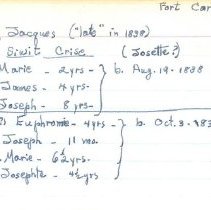 Fort Car
Jacques ("late" in 1838)
Siwit Crise (Josette?)
Marie - 2 yrs - } b. Aug. 19 - 1838
James - 4 yrs -
Joseph - 8 yrs -
Euphromie - 4 yrs - } b. Oct. 3 - 183
Joseph - 11 mo.
Marie - 6½ yrs -
Josephte - 4½ yrs